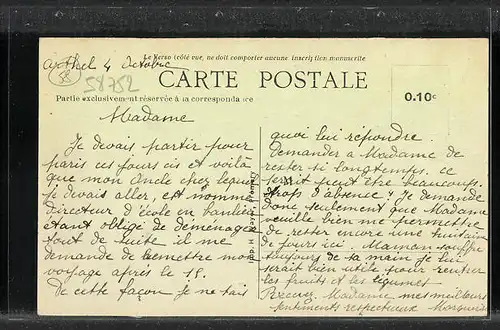 4 Octobre
Le Verso (côté vue, ne doit comporter aucune inscription manuscrite
58
58752
CARTE POSTALE
Partie exclusivement réservée à la correspondance
0.10€
Madame
Je devais partir pour
paris ces jours ci et voilà
que mon oncle chez lequel
je devais aller, est nommé
directeur d'école en banlieu
étant obligé de déménager
tout de suite il me
demande de remettre mon
voyage après le 15.
De cette façon je ne sais
quoi lui repondre.
Demander a Madame de
rester si longtemps. ce
serait peut être beaucoup
trop d'absence, je demande
donc seulement que Madame
veuille bien me permettre
de rester encore une huitaine
de jours ici. Maman souffre
toujours de sa main je lui
serait bien utile pour rentrer
les fruits et les légumes
Recevez Madame mes meilleurs
sentiments respectueux